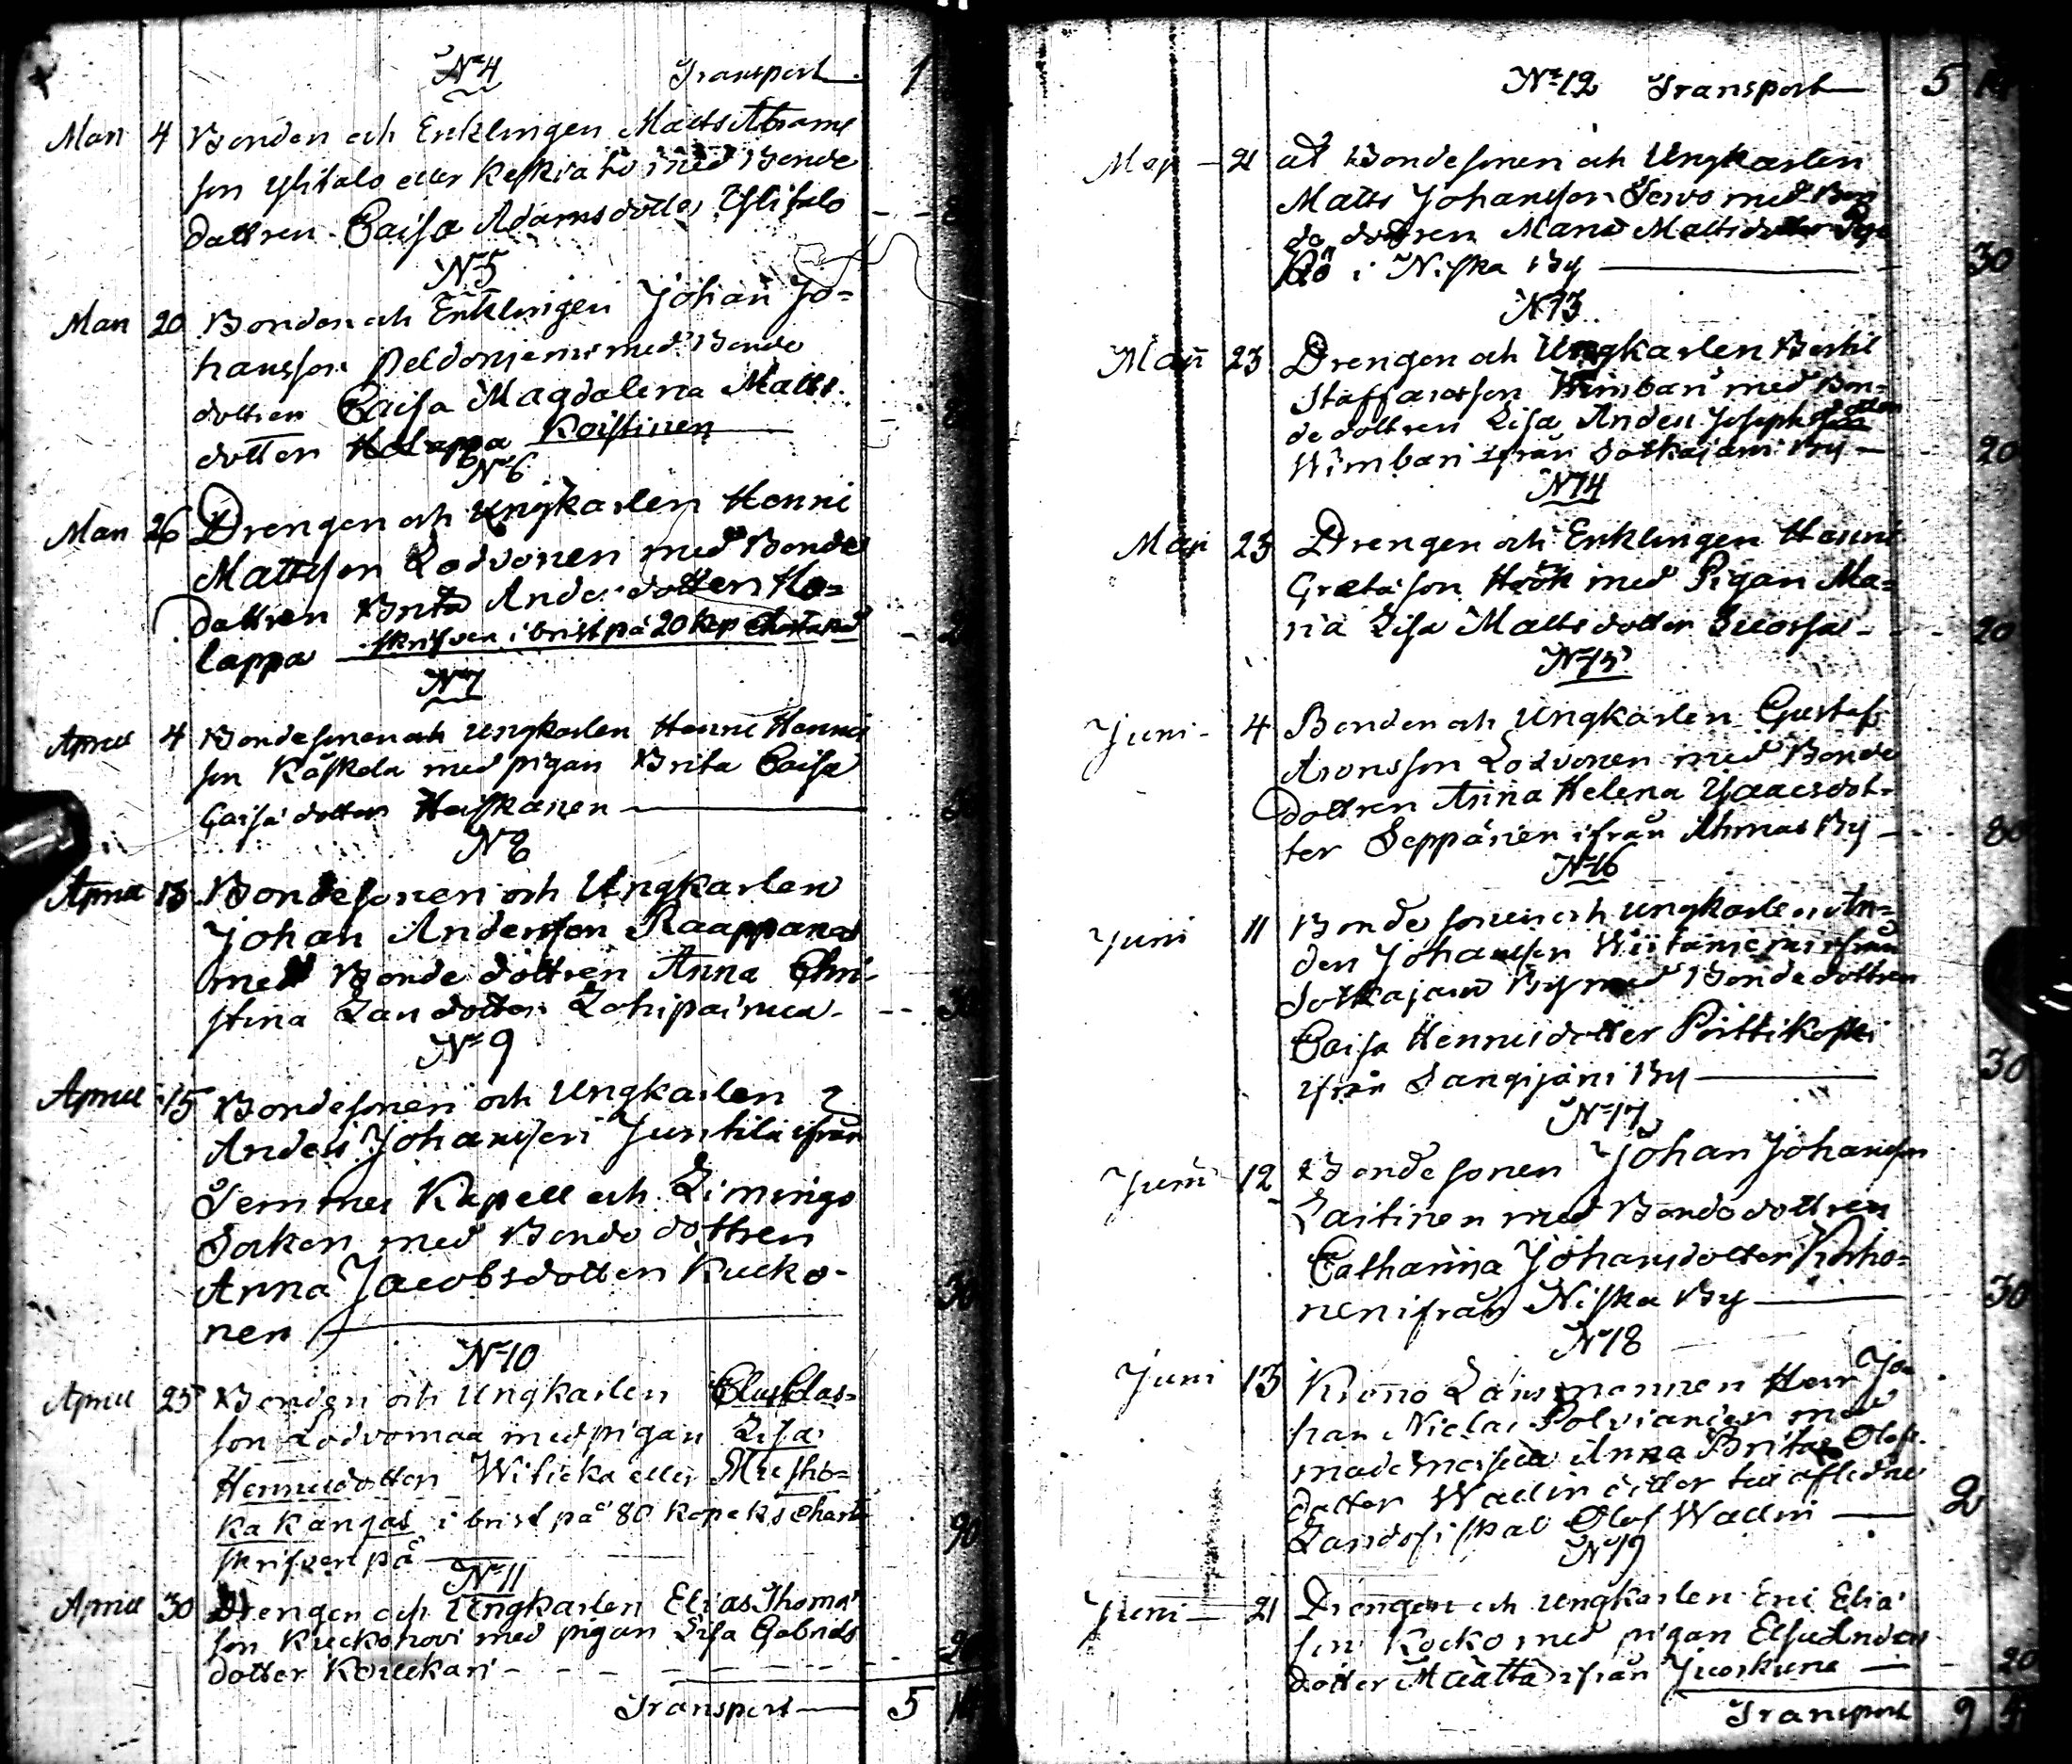 N:4 Transport 1
Mars 4 Bonden och Enklingen Matts Abrams
son Ylitalo eller Keskitalo med Bonde
dottren Caisa Adamsdotter Ylitalo - -
N:5
Mars 20 Bonden och Enklingen Johan Jo=
hansson Peldoniemi med Bonde
dottren Caisa Magdalena Matts
dotter Holappa Koistinen
N:6
Mars 26 Drengen och Ungkarlen Henric
Mattsson Lodvonen med Bonde
dottren Brita Anders dotter Ho=
lappa skrifven i brist på 20 kop Charta
N:7
Aprill 4 Bondesonen och Ungkarlen Henric Henrics
son Käskelä med pigan Brita Caisa
Caisä dotter Heiskanen
N:8
Aprill 13 Bondesonen och Ungkarlen
Johan Andersson Raappana
med Bonde dottren Anna Chri-
stina Lars dotter Lohipaimen - - 30
N:9
Aprill 15 Bondesonen och Ungkarlen
Anders Johansson Juntila ifrån
Temmes Kapell och Limingo
Socken med Bonde dottren
Anna Jacobsdotter Kucko-
nen 30
N:10
Aprill 25 Bonden och Ungkarlen Clas Clas=
son Lodvomaa med pigan Lisa
Henricsdotter Witicka eller Musho=
ka kangas i brist på 80 kopeks charta
skrifven på 90
N:11
Aprill 30 Drengen och Ungkarlen Elias Thomas
son Kuckohovi med pigan Lisa Gabriels
dotter Kouckari - - - 20
Transport 5 14
N:12 Transport 5 14
Maji 21 at Bondesonen och Ungkarlen
Matts Johansson Servo med Bon
de dottren Maria Mattsdotter
i Niska By 30
N:13
Maji 23 Drengen och Ungkarlen Bertil
Staffansson Wimbari med Bon=
de dottren Lisa Anders Josephsdotter
Wimbari ifrån Sotkajärvi By 20
N:14
Maji 25 Drengen och Enklingen Henric
Gretäson Höök med Pigan Ma=
ria Lisa Matts dotter Suorsa - - 20
N:15
Juni 4 Bonden och Ungkarlen Gustaf
Aronsson Lodvonen med Bonde
dottren Anna Helena Isaacsdot=
ter Seppänen ifrån Ahmas By 80
N:16
Juni 11 Bonde sonen och Ungkarlen An=
ders Johansson Wiitaniemi ifrån
Sotkajärvi By med Bondedottren
Caisa Henricsdotter Pirttikoski
ifrån Sangijärvi By 30
N:17
Juni 12 Bondesonen Johan Johansson
Laitinen med Bondedottren
Catharina Johansdotter Korho=
nen ifrån Niska By 30
N:18
Juni 13 Krono Länsmannen Herr Jo=
han Niclas Polviander med
mademoiselle Anna Brita Olofs
dotter Wallin dotter till aflidne
Landsfiskal Olof Wallin 2
N:19
Juni 21 Drengen och Ungkarlen Eric Elia
son Kocko med pigan Elsa Anders
dotter Määttä ifrån Juorkuna 20
Transport 9